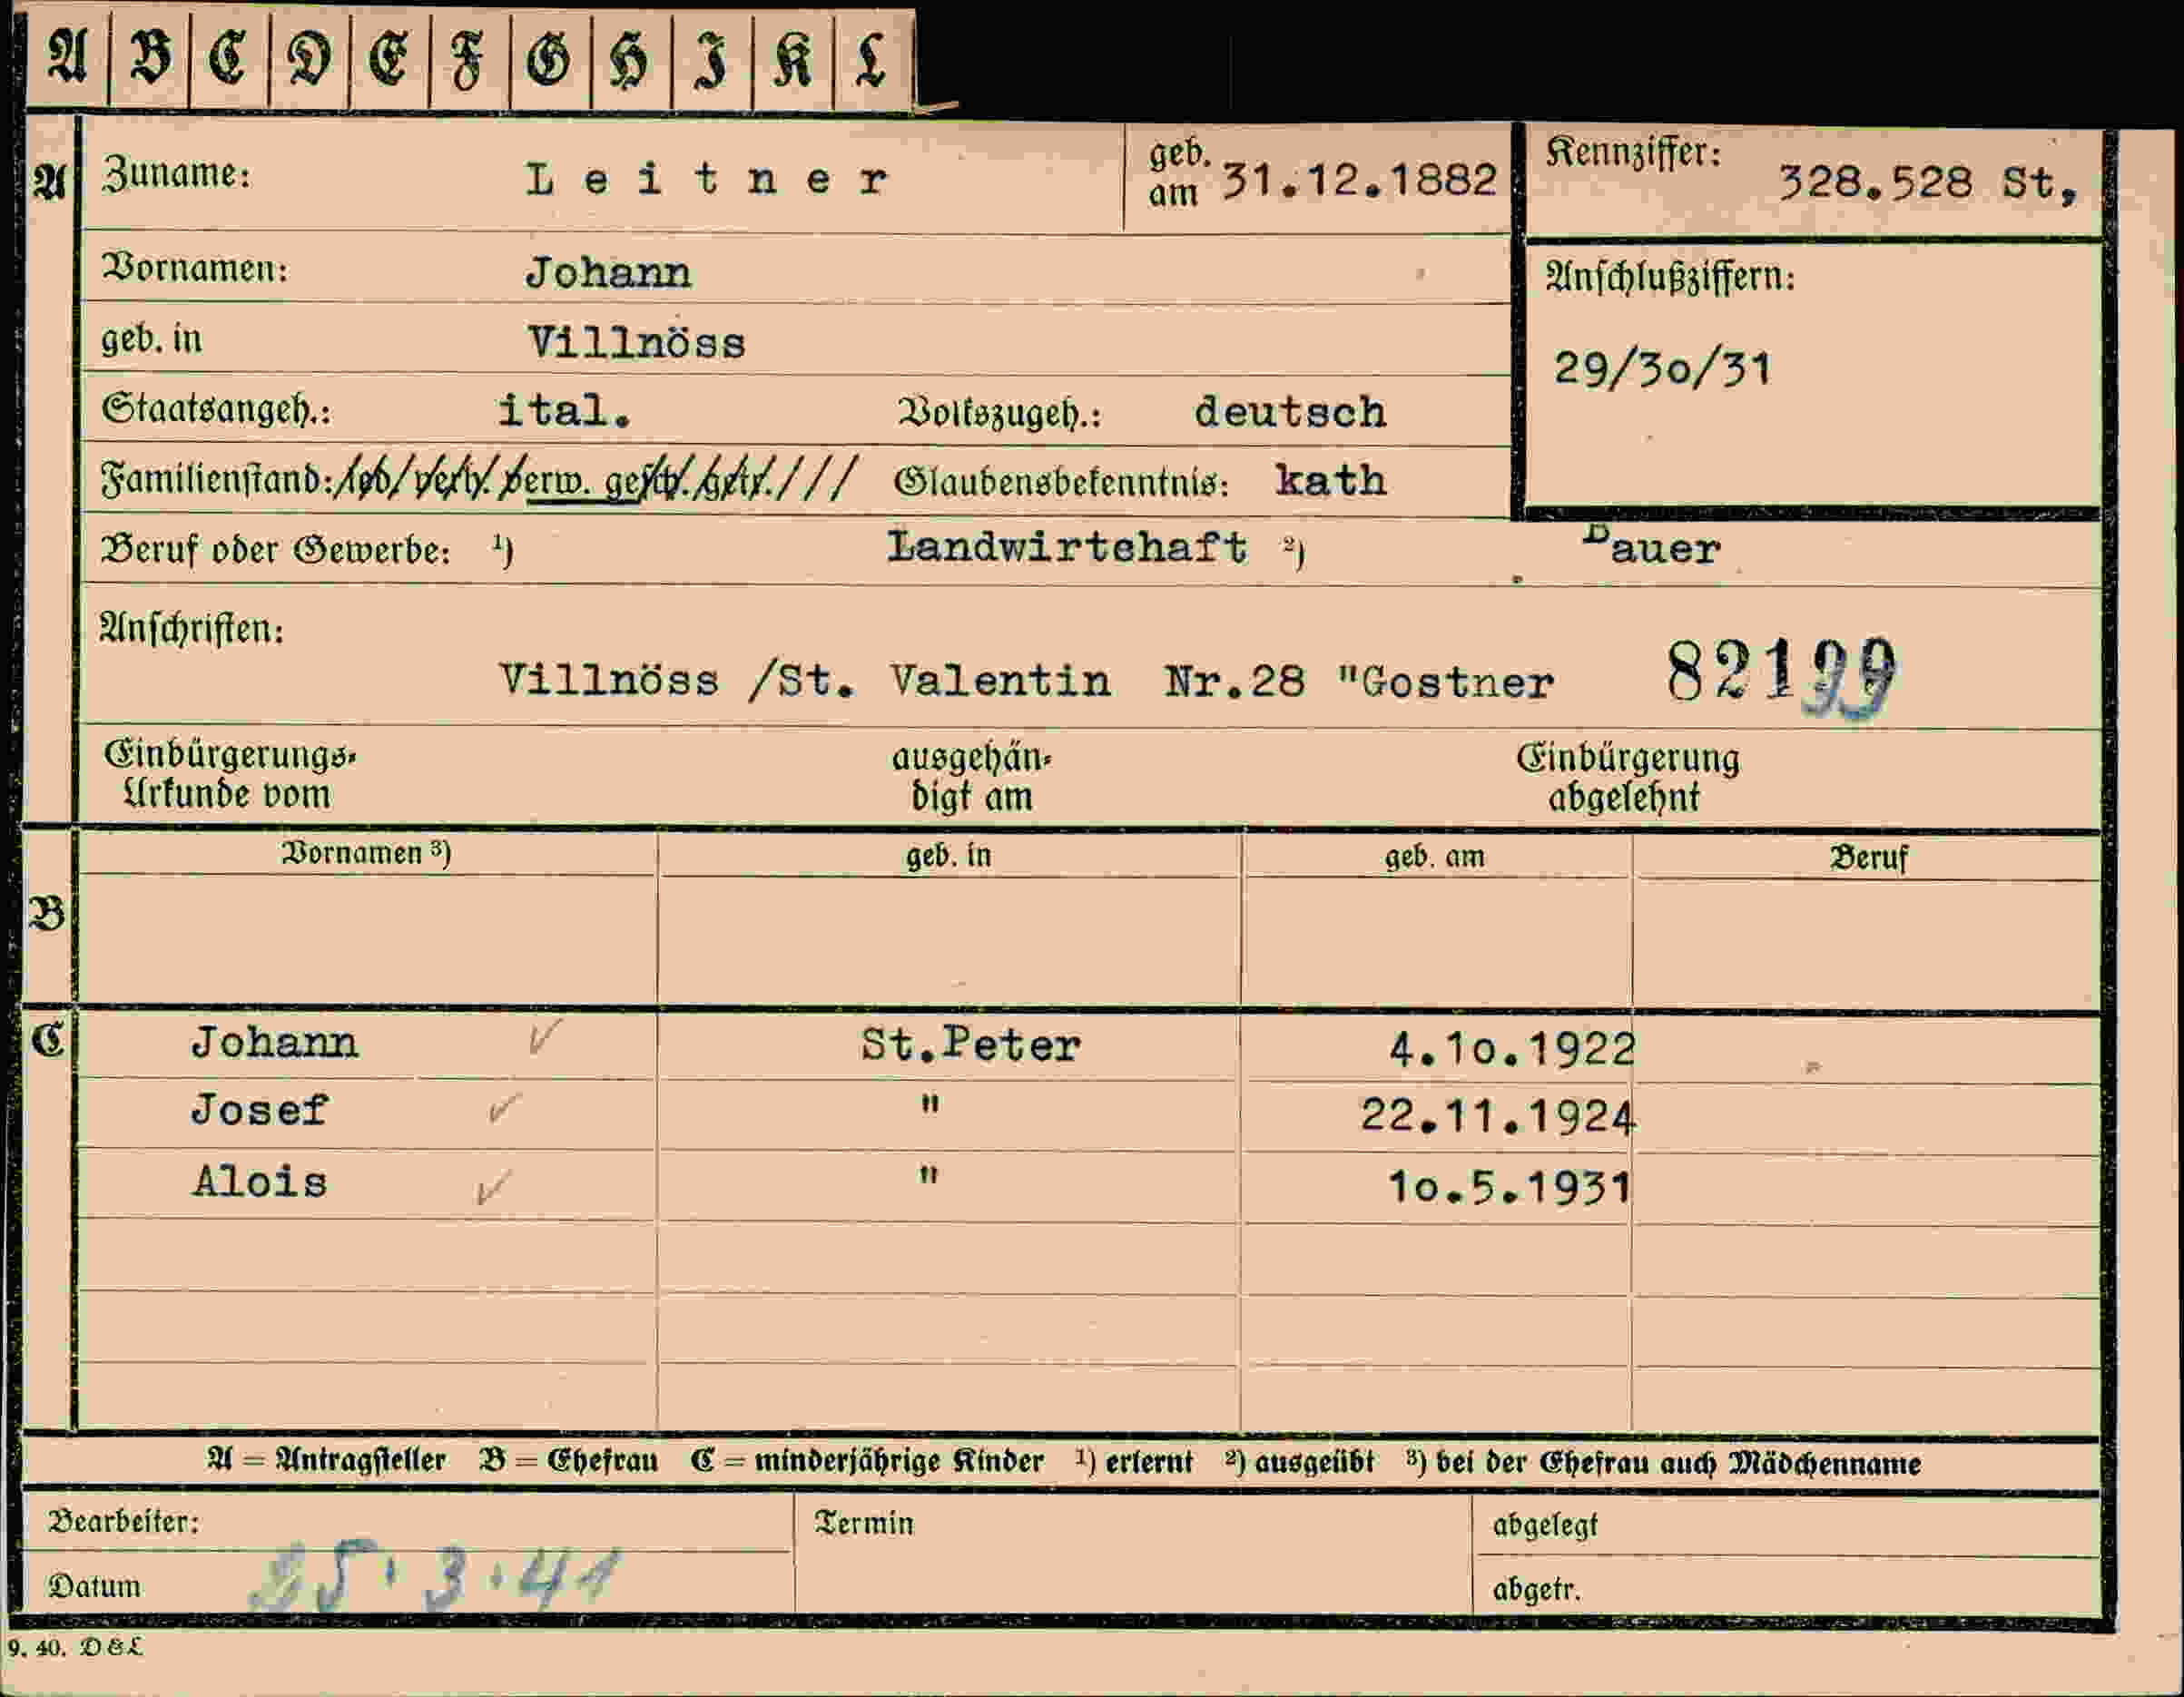 A B C D E F G H I K L
A Zuname: Leitner geb. am 31.12.1882 Kennziffer: 328.528 St,
Vornamen: Johann Anschlußziffern:
geb. in Villnöss 29/3o/31
Staatsangeh.: ital. Volkszugeh.: deutsch
Familienstand: led/ verh. verw. gesch. getr./// Glaubensbekenntnis: kath
Beruf oder Gewerbe: ¹) Landwirtshaft ²) Bauer
Anschriften:
Villnöss /St. Valentin Nr.28 "Gostner 82199
Einbürgerungs- ausgehän- Einbürgerung
Urkunde vom digt am abgelehnt
Vornamen ³) geb. in geb. am Beruf
B
C Johann ✓ St.Peter 4.1o.1922
Josef ✓ " 22.11.1924
Alois ✓ " 1o.5.1931
A = Antragsteller B = Ehefrau C = minderjährige Kinder ¹) erlernt ²) ausgeübt ³) bei der Ehefrau auch Mädchenname
Bearbeiter: Termin abgelegt
Datum 5.3.41 abgetr.
9. 40. D&L